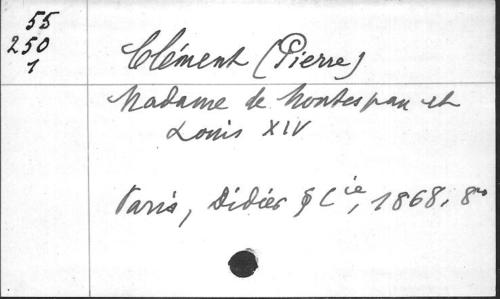 55
250
1
Clément (Pierre)
Madame de Montespan et
Louis XIV
Paris, Didier & Cie, 1868, 8vo